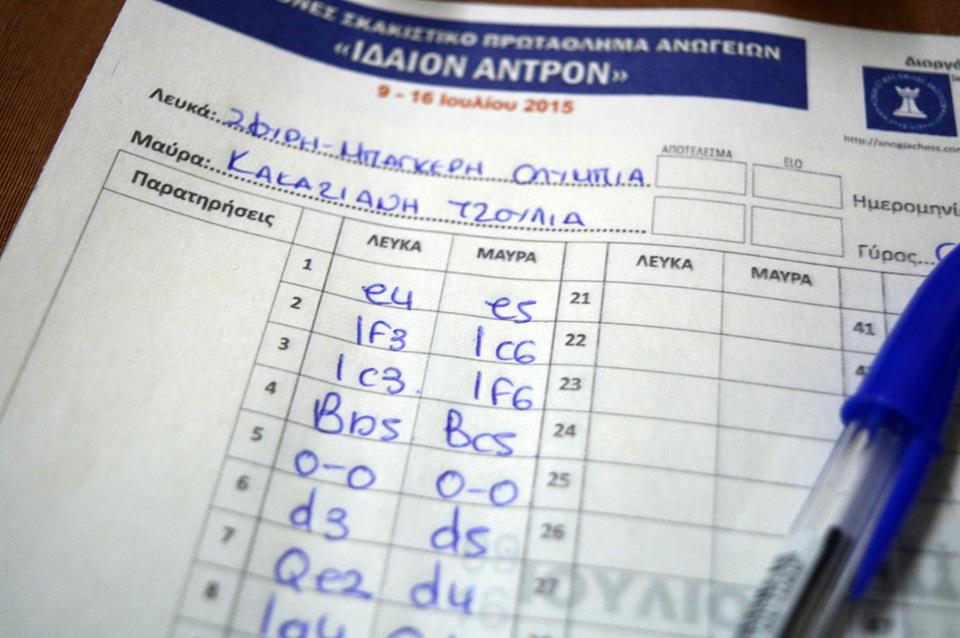 ΣΚΑΚΙΣΤΙΚΟ ΠΡΩΤΑΘΛΗΜΑ ΑΝΩΓΕΙΩΝ
«ΙΔΑΙΟΝ ΑΝΤΡΟΝ»
9 - 16 Ιουλίου 2015
http://anogiachess.com
Λευκά: ΣΦΙΡΗ-ΜΠΑΓΚΕΡΗ ΟΛΥΜΠΙΑ
Μαύρα: ΚΑΚΑΣΙΑΝΗ ΤΖΟΥΛΙΑ
ΑΠΟΤΕΛΕΣΜΑ ELO
Γύρος...
Παρατηρήσεις
ΛΕΥΚΑ ΜΑΥΡΑ ΛΕΥΚΑ ΜΑΥΡΑ
1 e4 e5 21 41
2 If3 Ic6 22
3 Ic3. If6 23
4 Bb5 Bc5 24
5 0-0 0-0 25
6 d3 d5 26
7 Qe2 d4 27
8